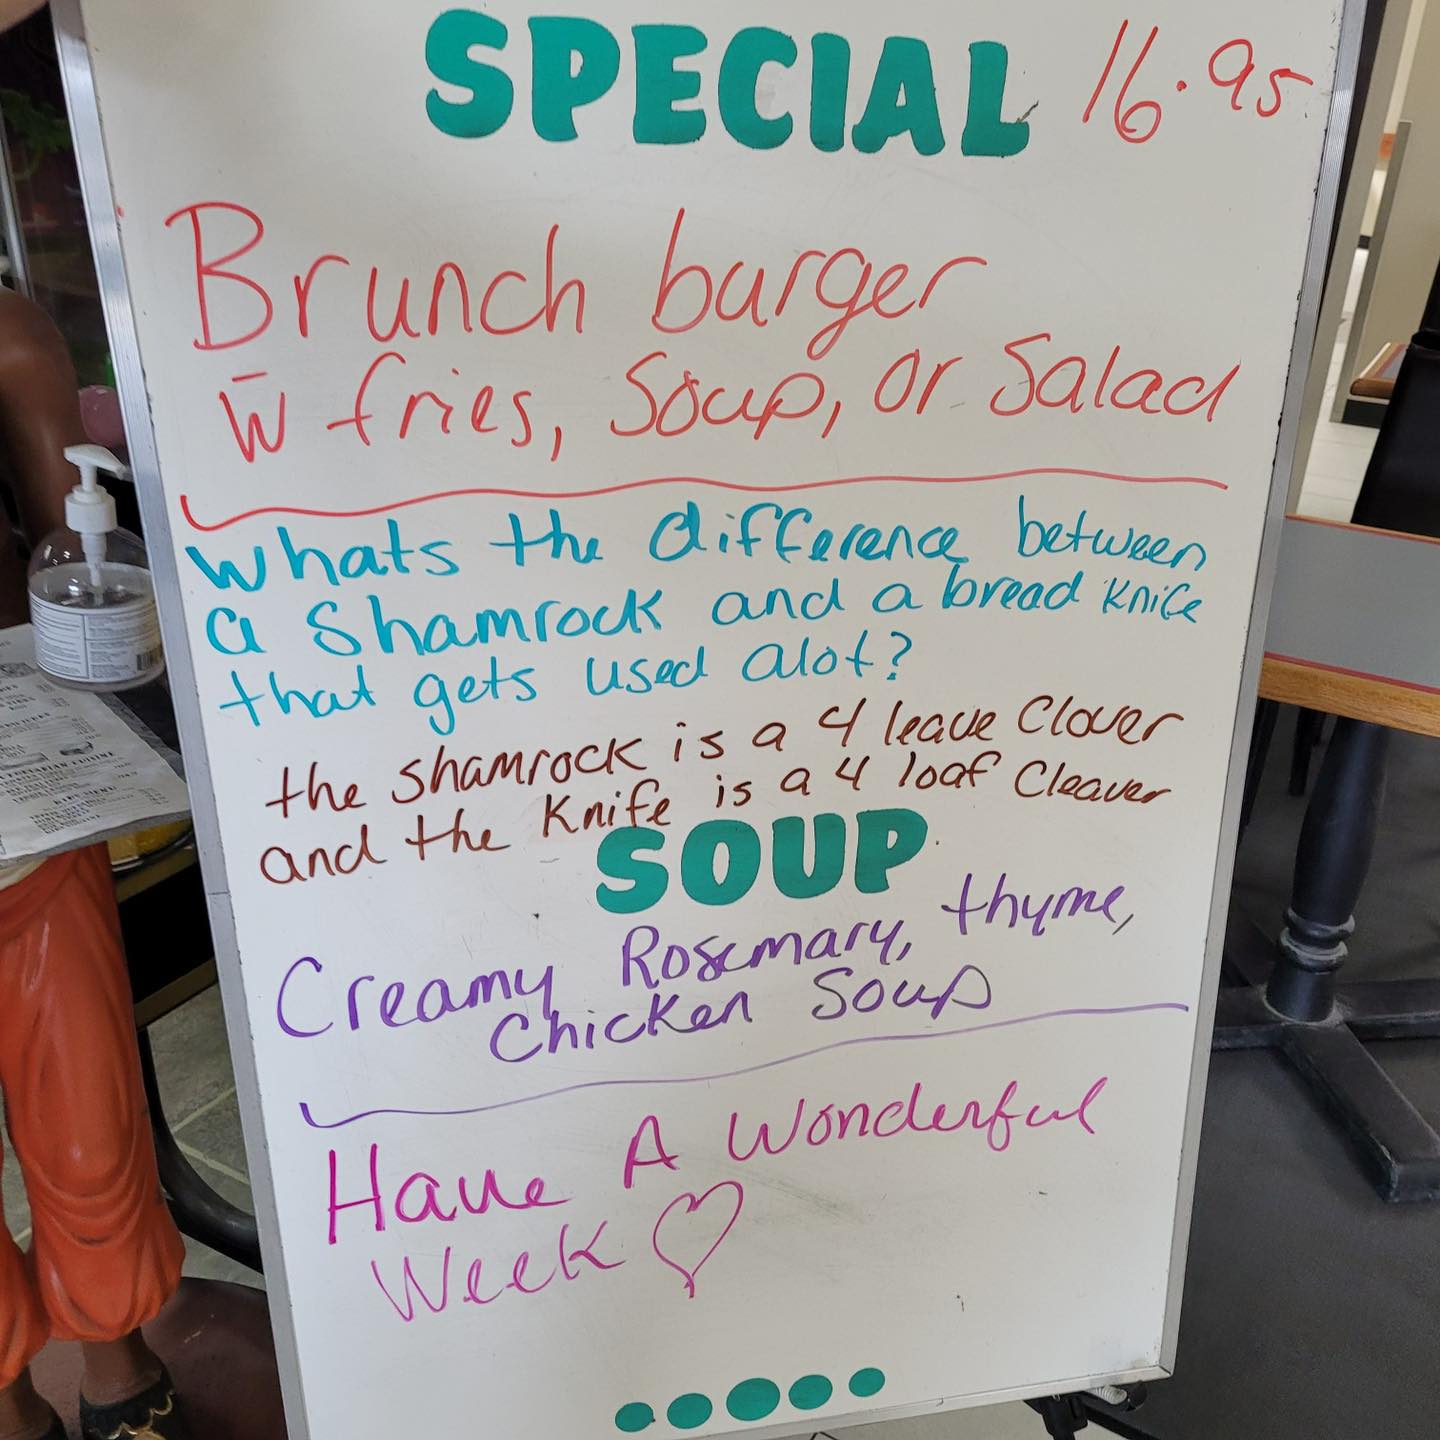 SPECIAL 16.95
Brunch burger
w̄ fries, Soup, or Salad
Whats the difference between
a Shamrock and a bread knife
that gets used alot?
the shamrock is a 4 leave Clover
and the Knife is a 4 loaf Cleaver
SOUP
Creamy Rosemary, thyme,
Chicken Soup
Have A Wonderful
Week ♡